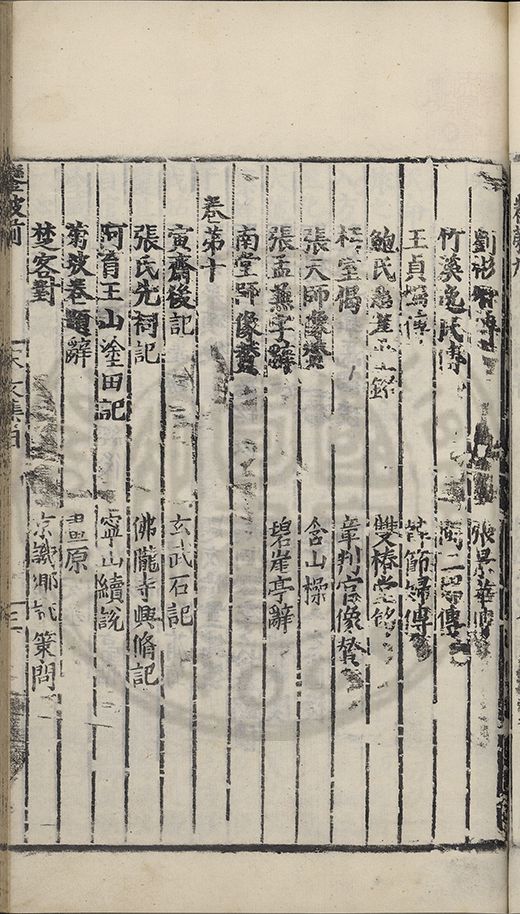 劉彬卿傳 張景華傳
竹溪逸民傳 二傳
王貞婦傳 節婦傳
鮑氏銘 雙椿堂銘
室偈 章判官像贊
張天師像贊 含山操
張孟兼字辭 碧崖亭辭
南堂師像贊
卷第十
寅齋後記 玄武石記
張氏先祠記 佛隴寺興脩記
阿育王山塗田記 寧山續說
菊坡卷題辭 原
楚客對 京畿鄉試策問
鑾坡前 文集目 三